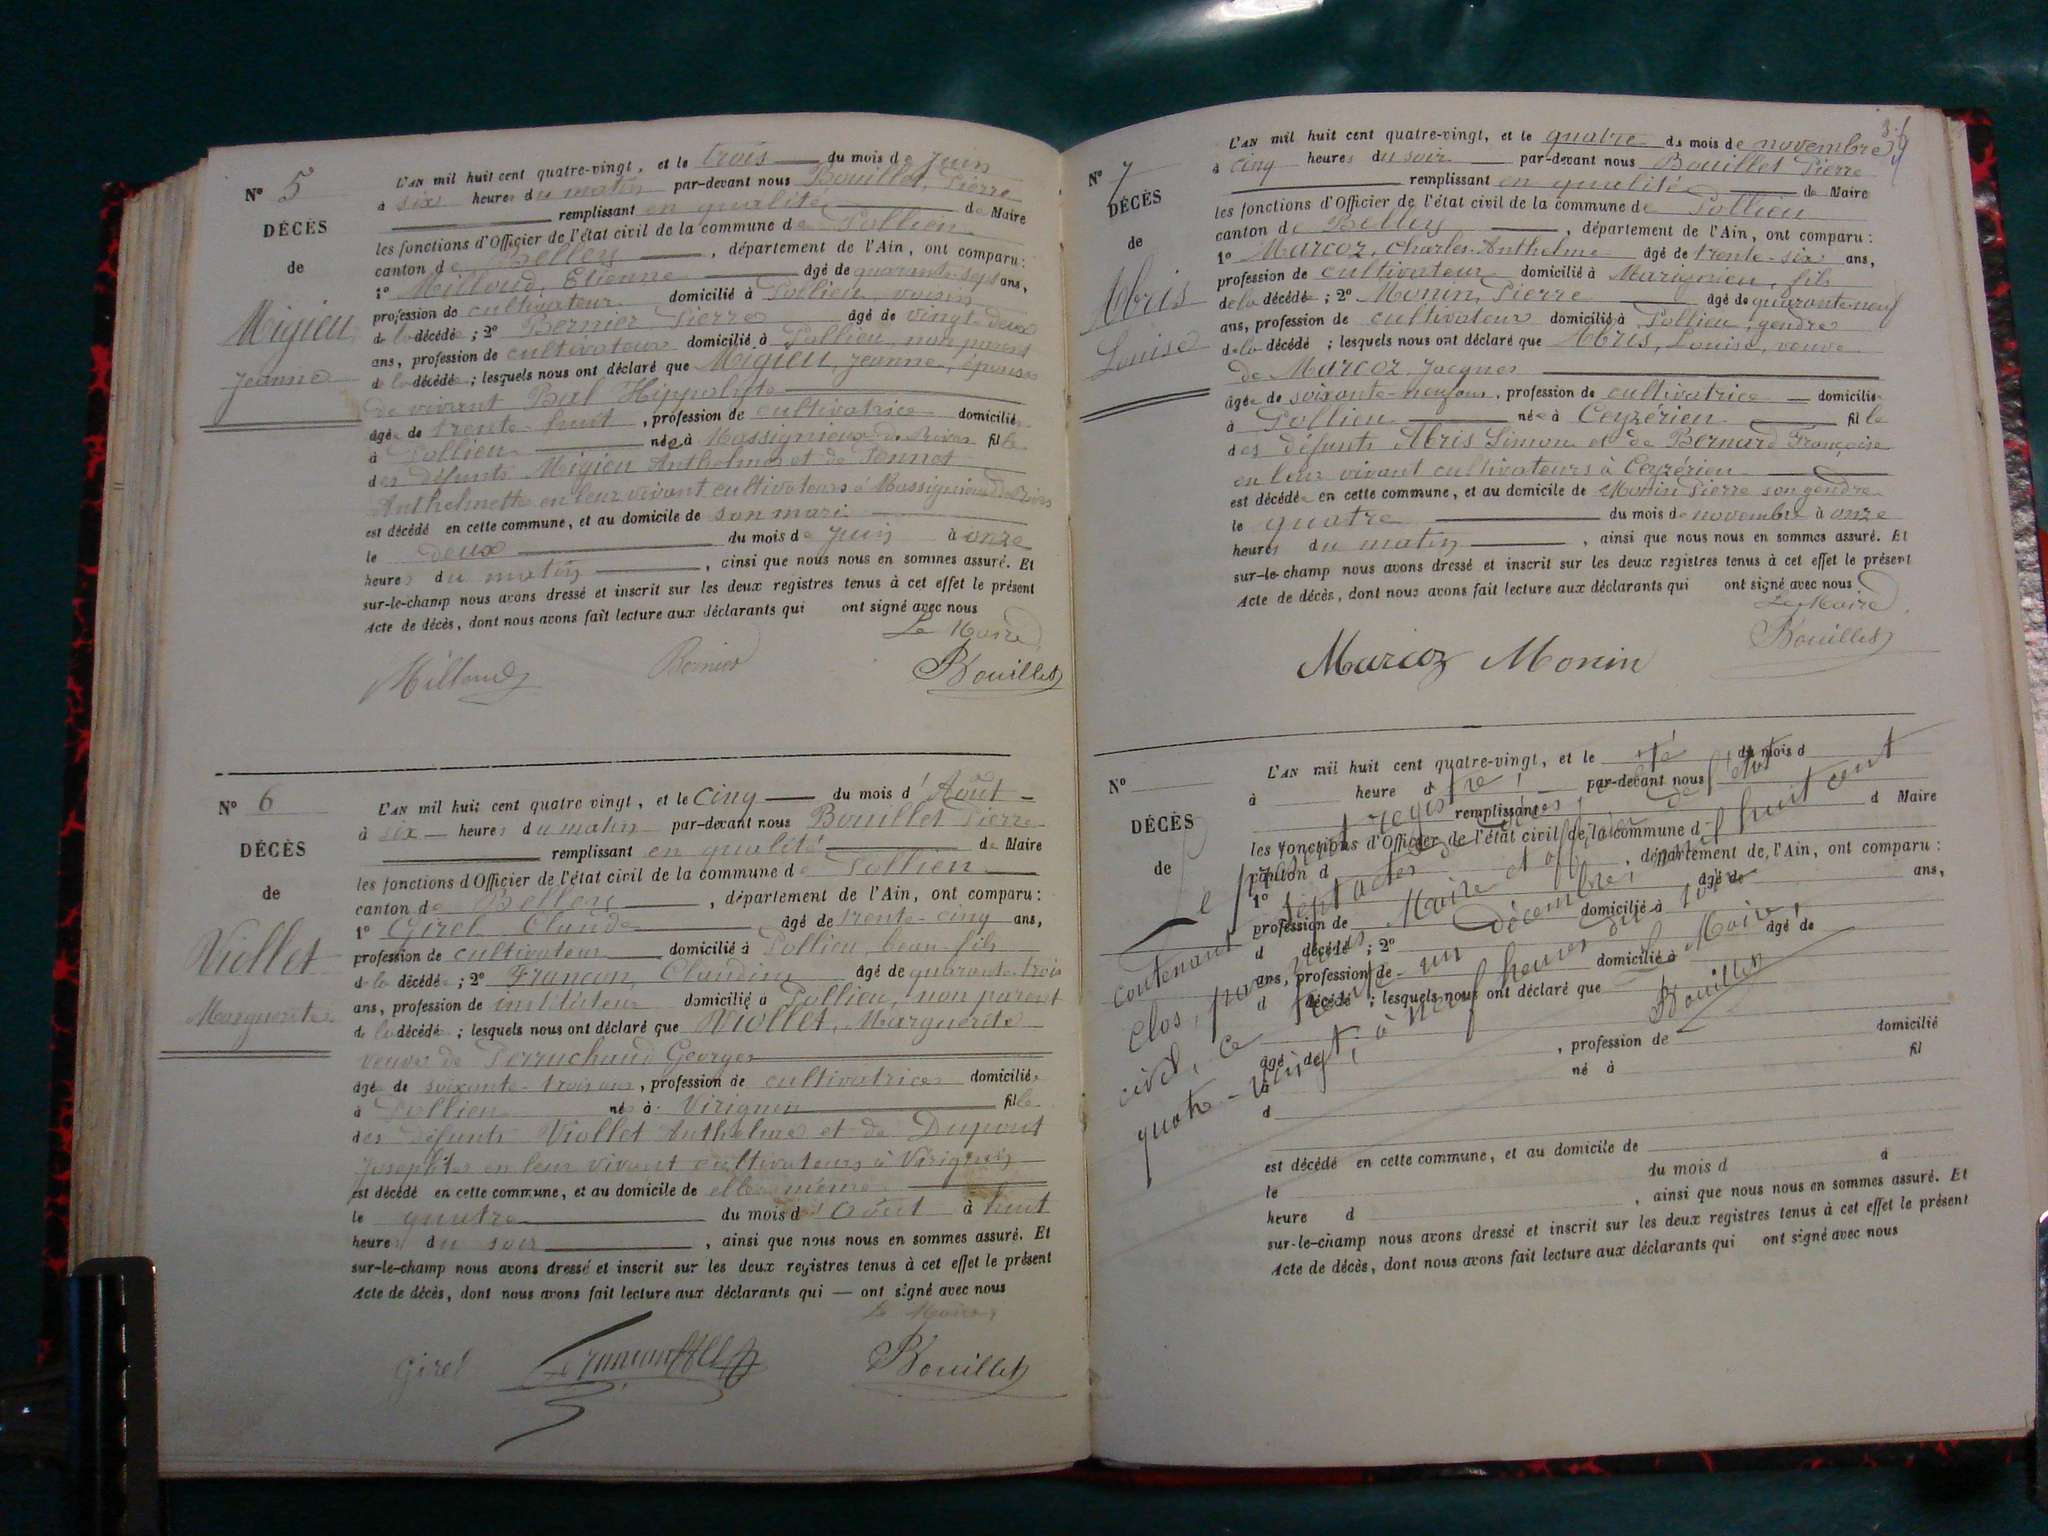 N° 5
DÉCÈS
de
Migieu
Jeanne
L'AN mil huit cent quatre-vingt, et le trois du mois de Juin
à six heures du matin par-devant nous Bouillet, Pierre
remplissant en qualité de Maire
les fonctions d'Officier de l'état civil de la commune de Pollieu
canton de Belley, département de l'Ain, ont comparu :
1° Milloud, Etienne âgé de quarante-sept ans,
profession de cultivateur domicilié à Pollieu, voisin
de la décédée ; 2° Bernier Pierre âgé de vingt-deux
ans, profession de cultivateur domicilié à Pollieu, non parent
de la décédée ; lesquels nous ont déclaré que Migieu, Jeanne, épouse
de vivant Bal Hippolyte
âgée de trente-huit, profession de cultivatrice domiciliée
à Pollieu née à Massignieu de Rives fille
des défunts Migieu Anthelme et de Pennot
Anthelmette en leur vivant cultivateurs à Massignieu de Rives
est décédé en cette commune, et au domicile de son mari
le deux du mois de Juin à onze
heures du matin, ainsi que nous nous en sommes assuré. Et
sur-le-champ nous avons dressé et inscrit sur les deux registres tenus à cet effet le présent
Acte de décès, dont nous avons fait lecture aux déclarants qui ont signé avec nous
Le Maire
Milloud Bernier Bouillet
N° 6
DÉCÈS
de
Viollet
Marguerite
L'AN mil huit cent quatre vingt, et le cinq du mois d'Août
à six heures du matin par-devant nous Bouillet Pierre
remplissant en qualité de Maire
les fonctions d'Officier de l'état civil de la commune de Pollieu
canton de Belley, département de l'Ain, ont comparu :
1° Girel Claude âgé de trente-cinq ans,
profession de cultivateur domicilié à Pollieu, beau-fils
de la décédée ; 2° Francon, Claudius âgé de quarante-trois
ans, profession de instituteur domicilié à Pollieu, non parent
de la décédée ; lesquels nous ont déclaré que Viollet, Marguerite
veuve de Perruchaud Georges
âgée de soixante-trois ans, profession de cultivatrice domiciliée
à Pollieu né à Virignin fille
des défunts Viollet Anthelme et de Dupont
Josephte en leur vivant cultivateurs à Virignin
est décédé en cette commune, et au domicile de elle-même
le quatre du mois d'Août à huit
heures du soir, ainsi que nous nous en sommes assuré. Et
sur-le-champ nous avons dressé et inscrit sur les deux registres tenus à cet effet le présent
Acte de décès, dont nous avons fait lecture aux déclarants qui — ont signé avec nous
Le Maire,
Girel Bouillet
N° 7
DÉCÈS
de
Abris
Louise
L'AN mil huit cent quatre-vingt, et le quatre du mois de novembre
à cinq heures du soir par-devant nous Bouillet Pierre
remplissant en qualité de Maire
les fonctions d'Officier de l'état civil de la commune de Pollieu
canton de Belley, département de l'Ain, ont comparu :
1° Marcoz, Charles-Anthelme âgé de trente-six ans,
profession de cultivateur domicilié à Marignieu, fils
de la décédée ; 2° Monin, Pierre âgé de quarante-neuf
ans, profession de cultivateur domicilié à Pollieu, gendre
de la décédé ; lesquels nous ont déclaré que Abris, Louise, veuve
de Marcoz Jacques
âgée de soixante-neuf ans, profession de cultivatrice domiciliée
à Pollieu née à Ceyzérieu fille
des défunts Abris Simon et de Bernard Françoise
en leur vivant cultivateurs à Ceyzérieu
est décédée en cette commune, et au domicile de Monin Pierre son gendre
le quatre du mois de novembre à onze
heures du matin, ainsi que nous nous en sommes assuré. Et
sur-le-champ nous avons dressé et inscrit sur les deux registres tenus à cet effet le présent
Acte de décès, dont nous avons fait lecture aux déclarants qui ont signé avec nous
Le Maire
Marcoz Monin Bouillet
N°
DÉCÈS
de
L'AN mil huit cent quatre-vingt, et le du mois d
à heure d par-devant nous
remplissant
les fonctions d'Officier de l'état civil de la commune d d Maire
canton d, département de l'Ain, ont comparu :
1° âgé de ans,
profession de domicilié à
d décédé ; 2° âgé de
ans, profession de domicilié à
d décédé ; lesquels nous ont déclaré que
âgé de, profession de domicilié
à né à fil
d
est décédé en cette commune, et au domicile de
le du mois d à
heure d, ainsi que nous nous en sommes assuré. Et
sur-le-champ nous avons dressé et inscrit sur les deux registres tenus à cet effet le présent
Acte de décès, dont nous avons fait lecture aux déclarants qui ont signé avec nous
Le présent registre,
contenant sept actes de décès, a été
clos, par nous Maire et officier de l'état
civil, ce trente un décembre, mil huit cent
quatre-vingt, à neuf heures du soir
Le Maire,
Bouillet